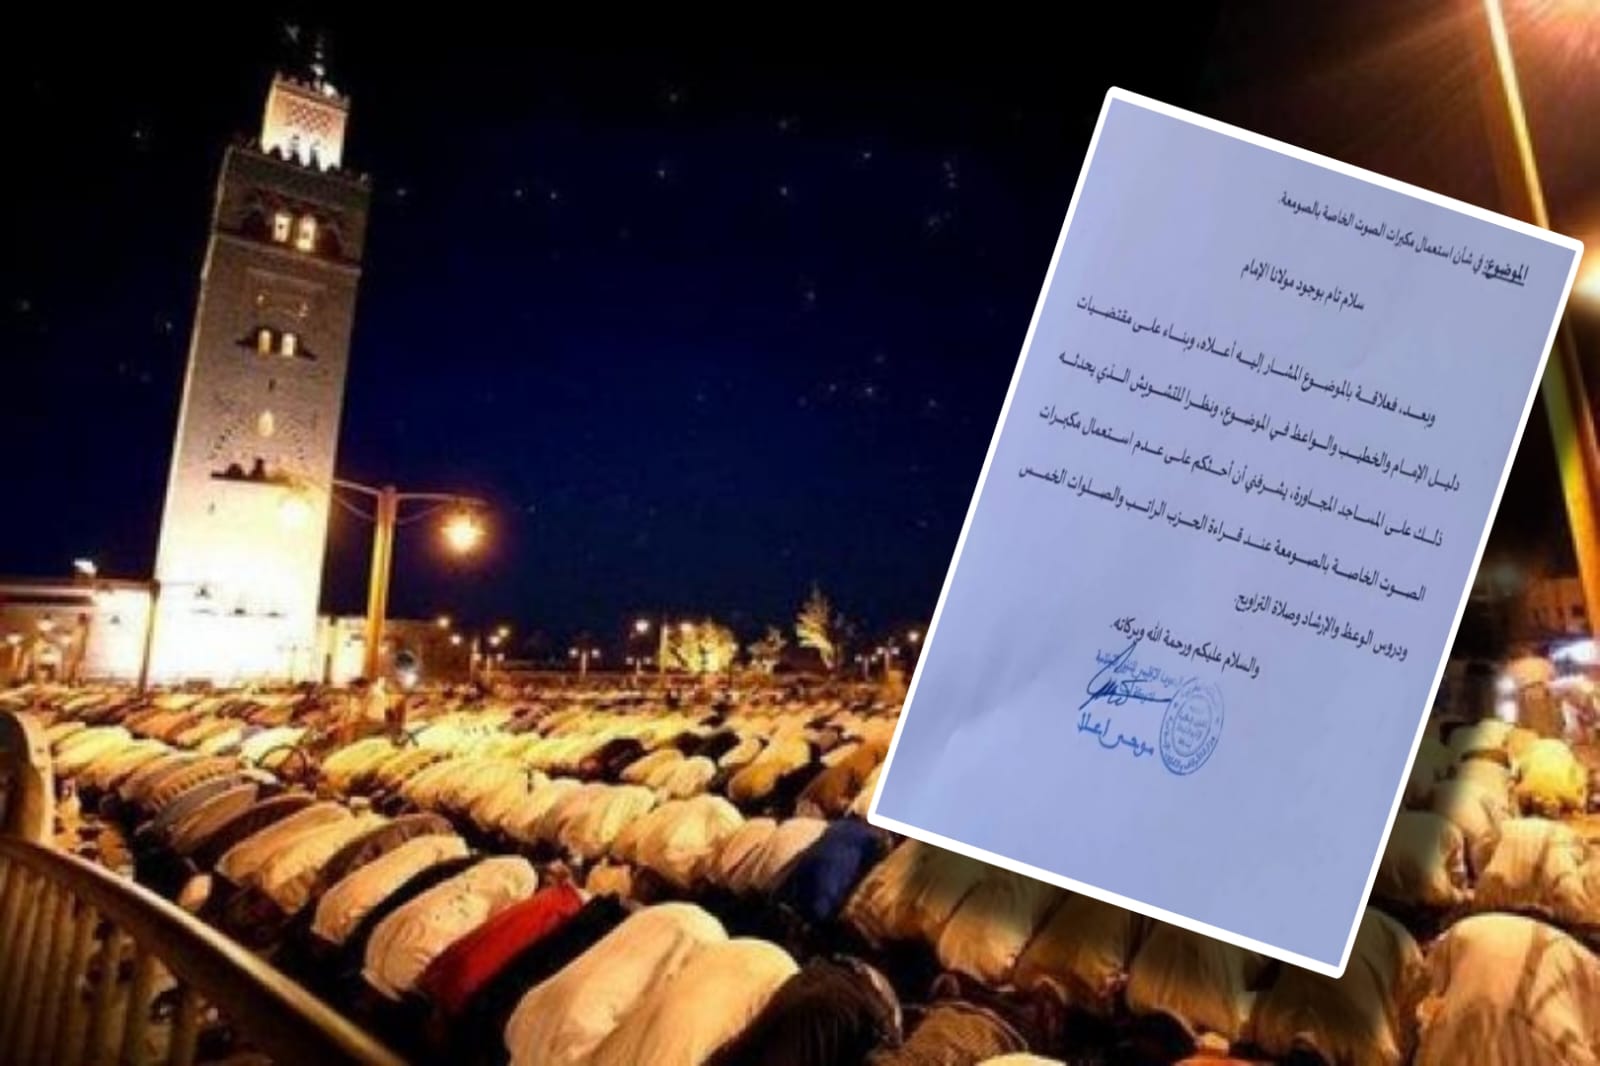 الموضوع: في شأن استعمال مكبرات الصوت الخاصة بالصومعة.
سلام تام بوجود مولانا الإمام
وبعد، فعلاقة بالموضوع المشار إليه أعلاه، وبناء على مقتضيات
دليل الإمام والخطيب والواعظ في الموضوع، ونظرا للتشويش الذي يحدثه
ذلك على المساجد المجاورة، يشرفني أن أحثكم على عدم استعمال مكبرات
الصوت الخاصة بالصومعة عند قراءة الحزب الراتب والصلوات الخمس
ودروس الوعظ والإرشاد وصلاة التراويح.
والسلام عليكم ورحمة الله وبركاته.